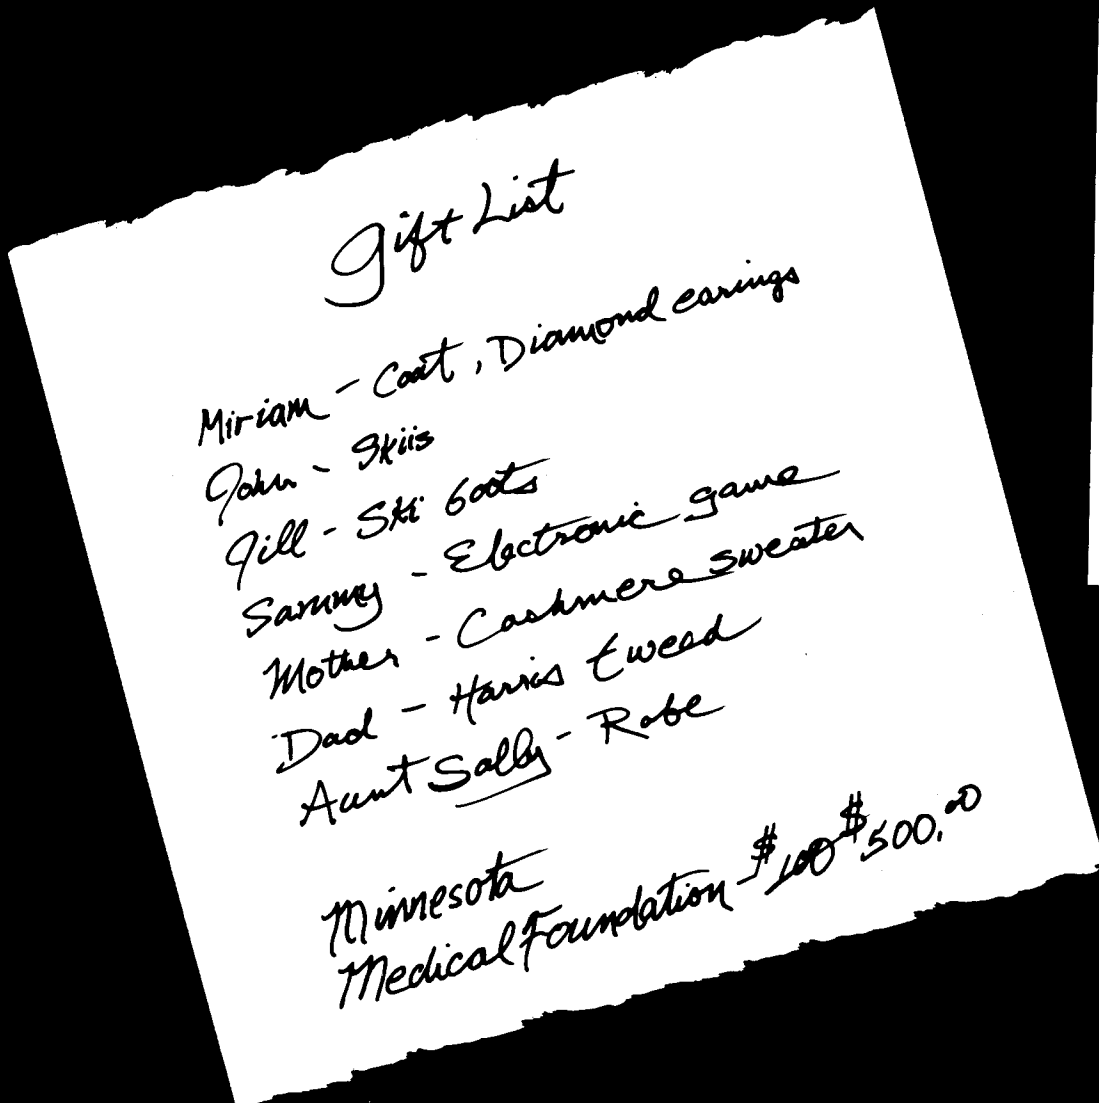 Gift List
Miriam - Coat, Diamond earings
John - Skiis
Jill - Ski boots
Sammy - Electronic game
Mother - Cashmere sweater
Dad - Harris tweed
Aunt Sally - Robe
Minnesota
Medical Foundation - $100 $500.00